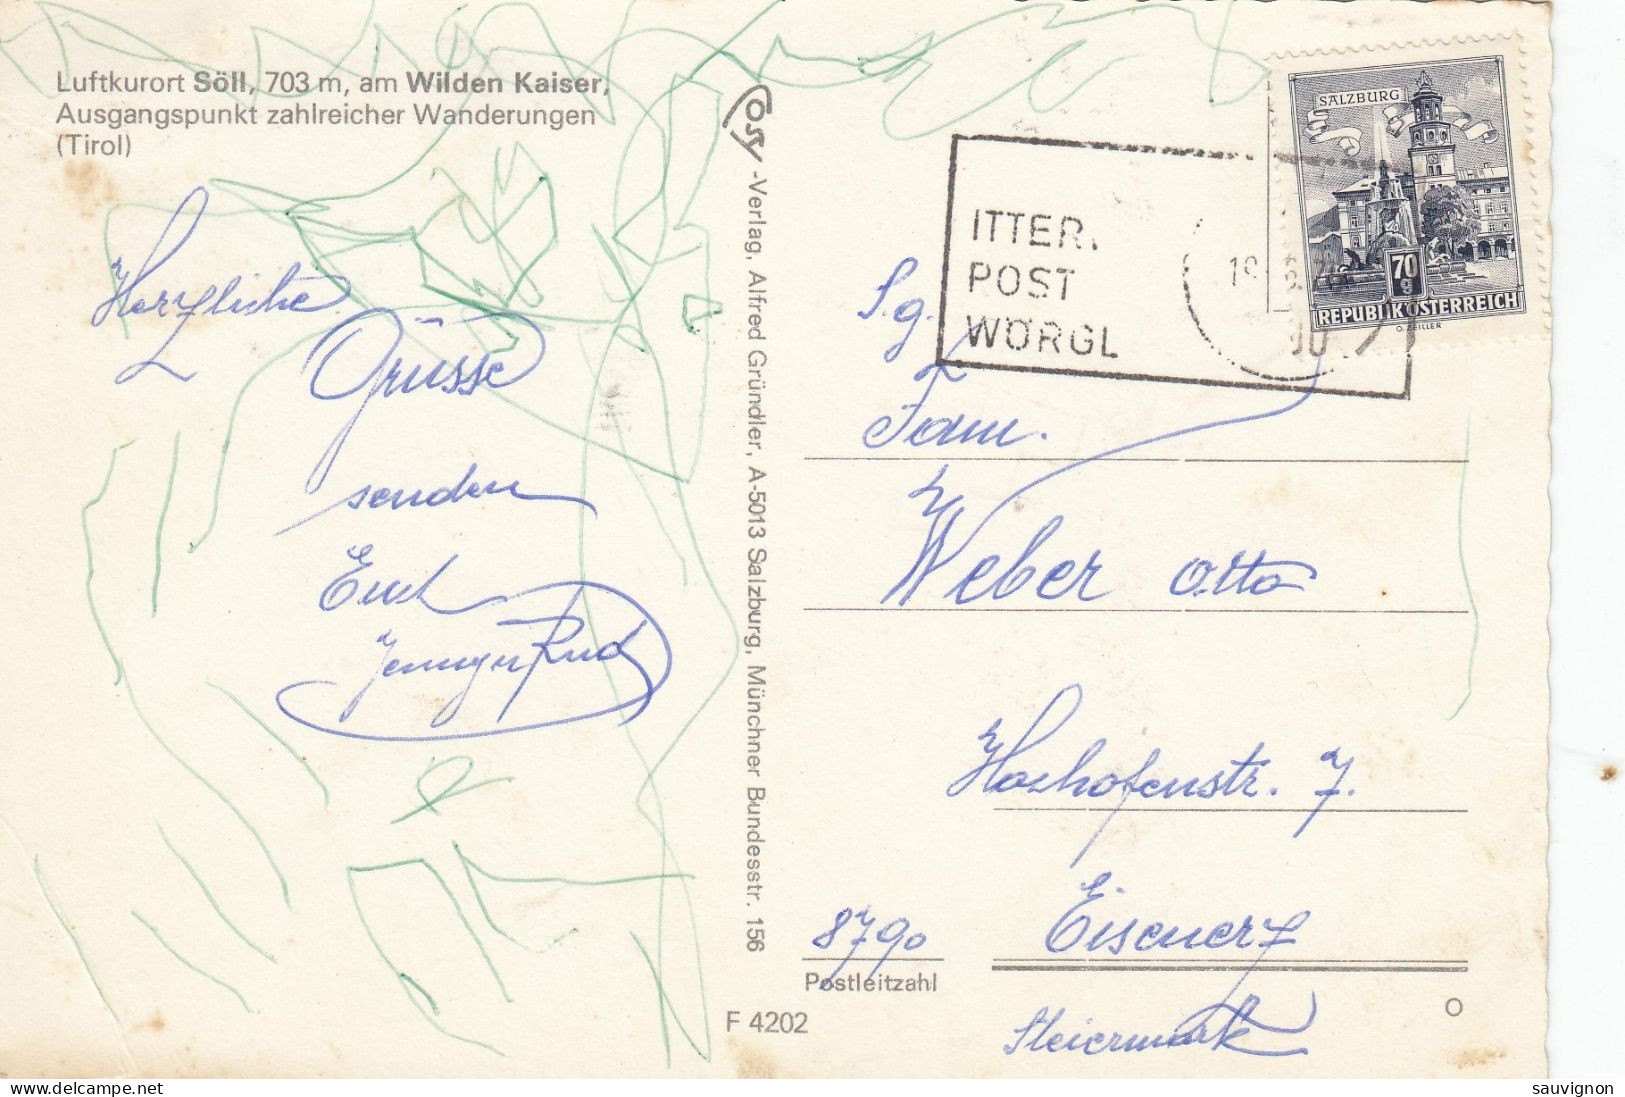 Luftkurort Söll, 703 m, am Wilden Kaiser,
Ausgangspunkt zahlreicher Wanderungen
(Tirol)
Herzliche
Grüsse
senden
Euch
Cosy-Verlag, Alfred Gründler, A-5013 Salzburg, Münchner Bundesstr. 156
F 4202
SALZBURG
70 g
REPUBLIK ÖSTERREICH
O. ZEILLER
ITTER,
POST
WÖRGL
S.g.
Fam.
Weber Otto
Hochofenstr. 7.
8790 Eisenerz
Postleitzahl
Steiermark
O
sauvignon